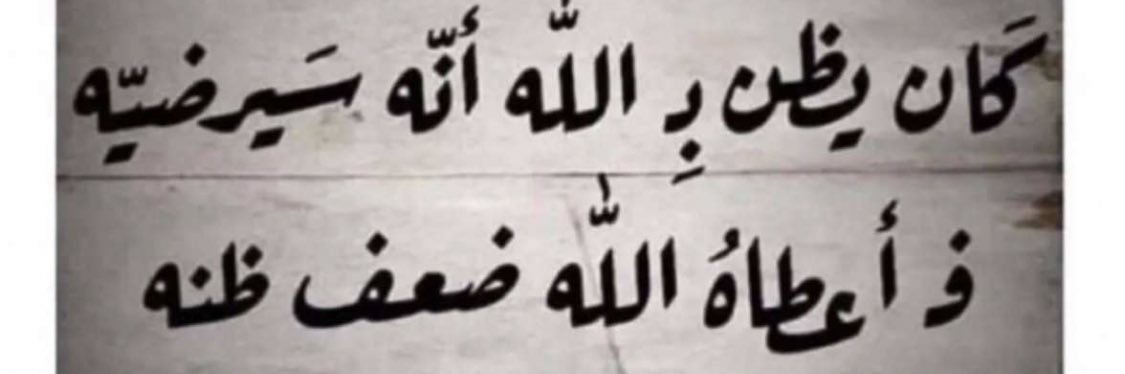 كَان يظن بِ الله أنّه سَيرضيّه
فـ أعطاهُ اللّٰه ضعف ظنه